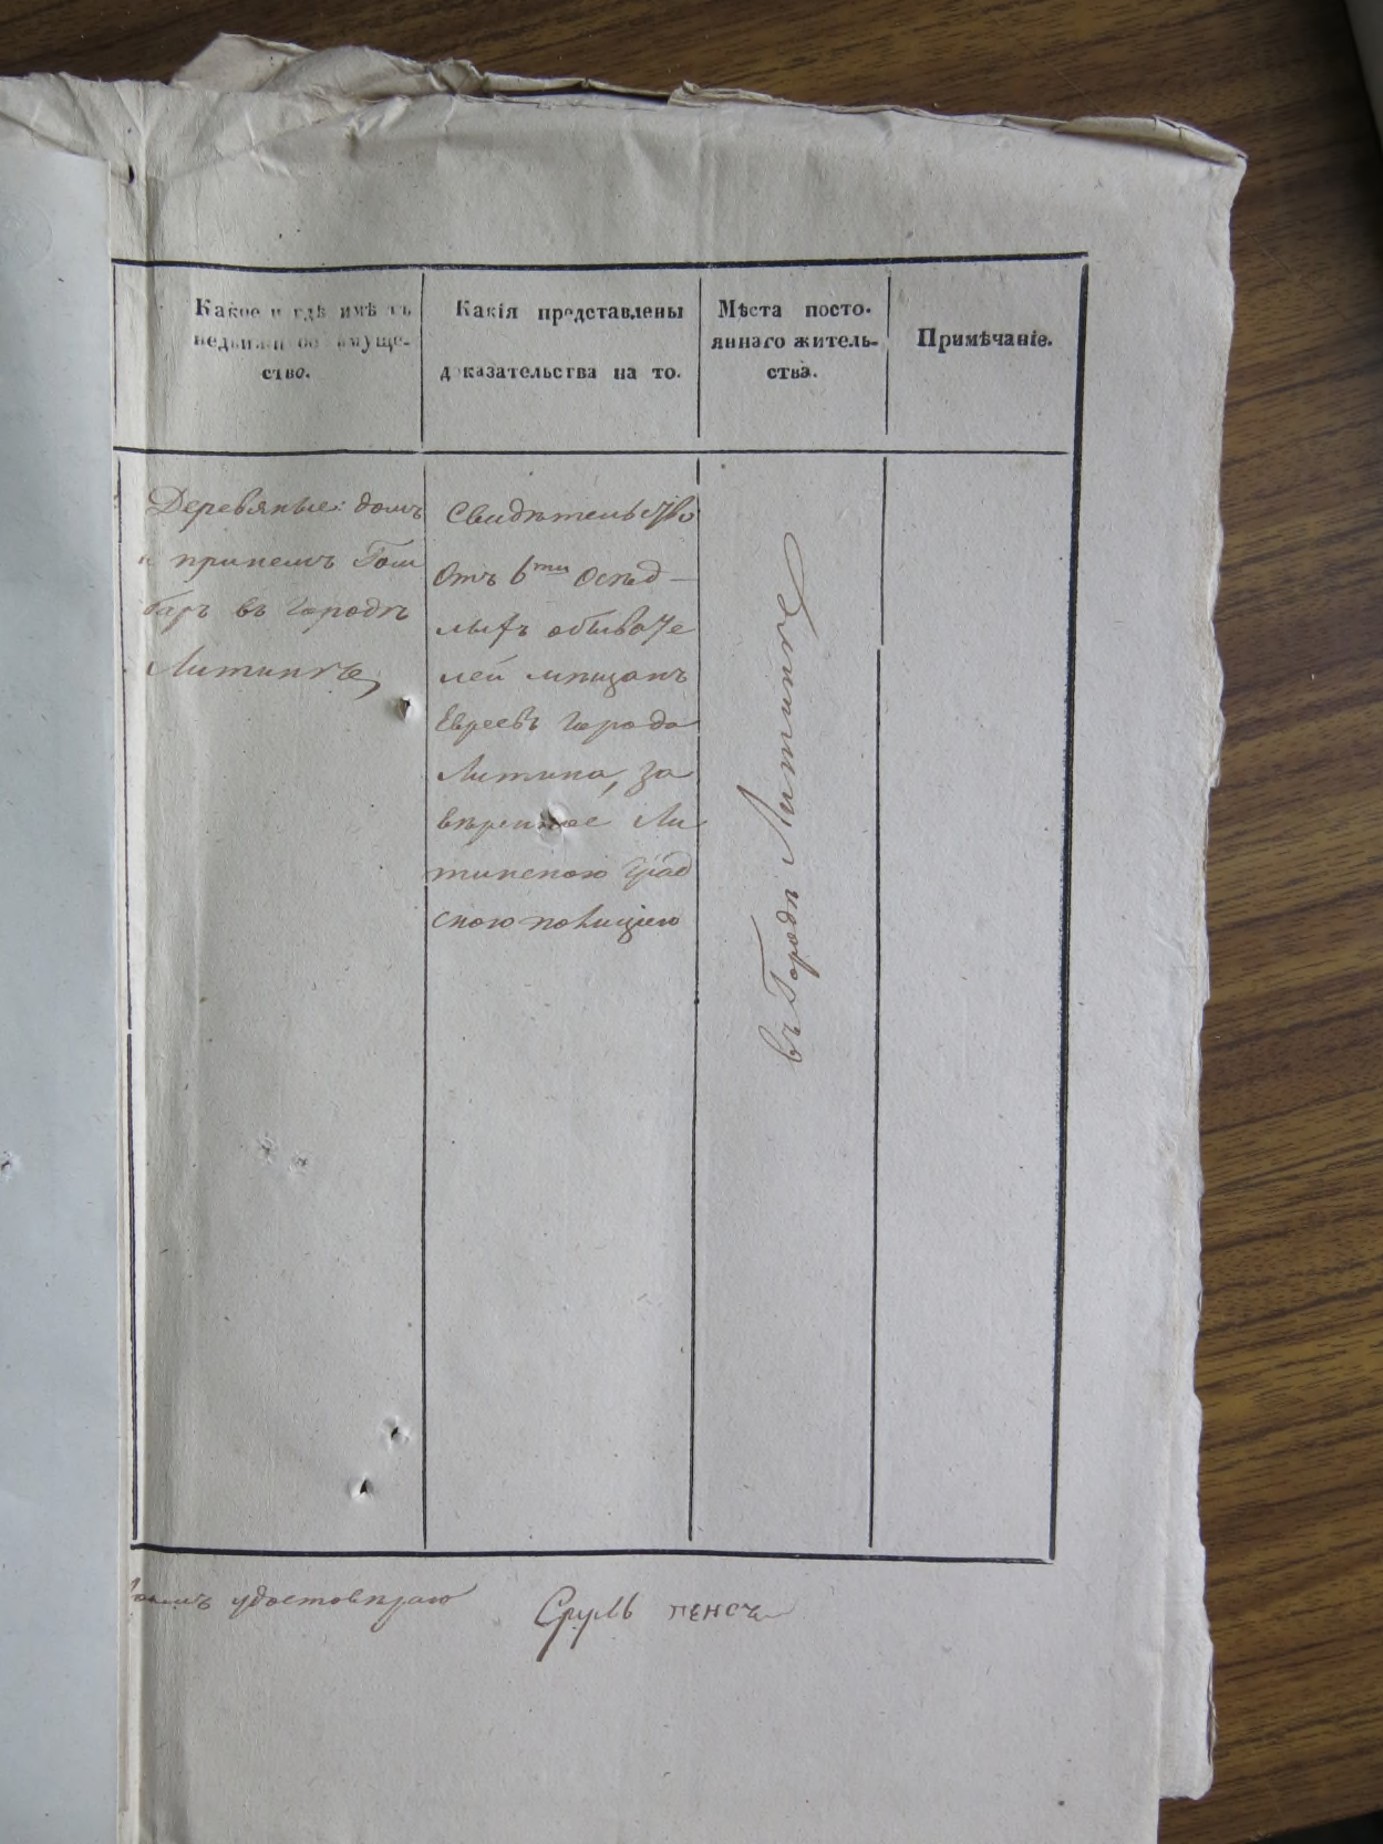 Какое и гдѣ имѣетъ
недвижимое имуще-
ство.
Какія представлены
доказательства на то.
Мѣста посто-
яннаго житель-
ства.
Примѣчаніе.
Деревяные: домъ
и принемъ
въ городѣ
Литинѣ,
Свидѣтельство
отъ 6ти осѣд-
лыхъ обывате
лей мѣщанъ
Евреевъ города
Литина, за
вѣренное Ли
тинскою град
скою полициею
въ Городѣ Литинѣ
удостовѣряю Сруль